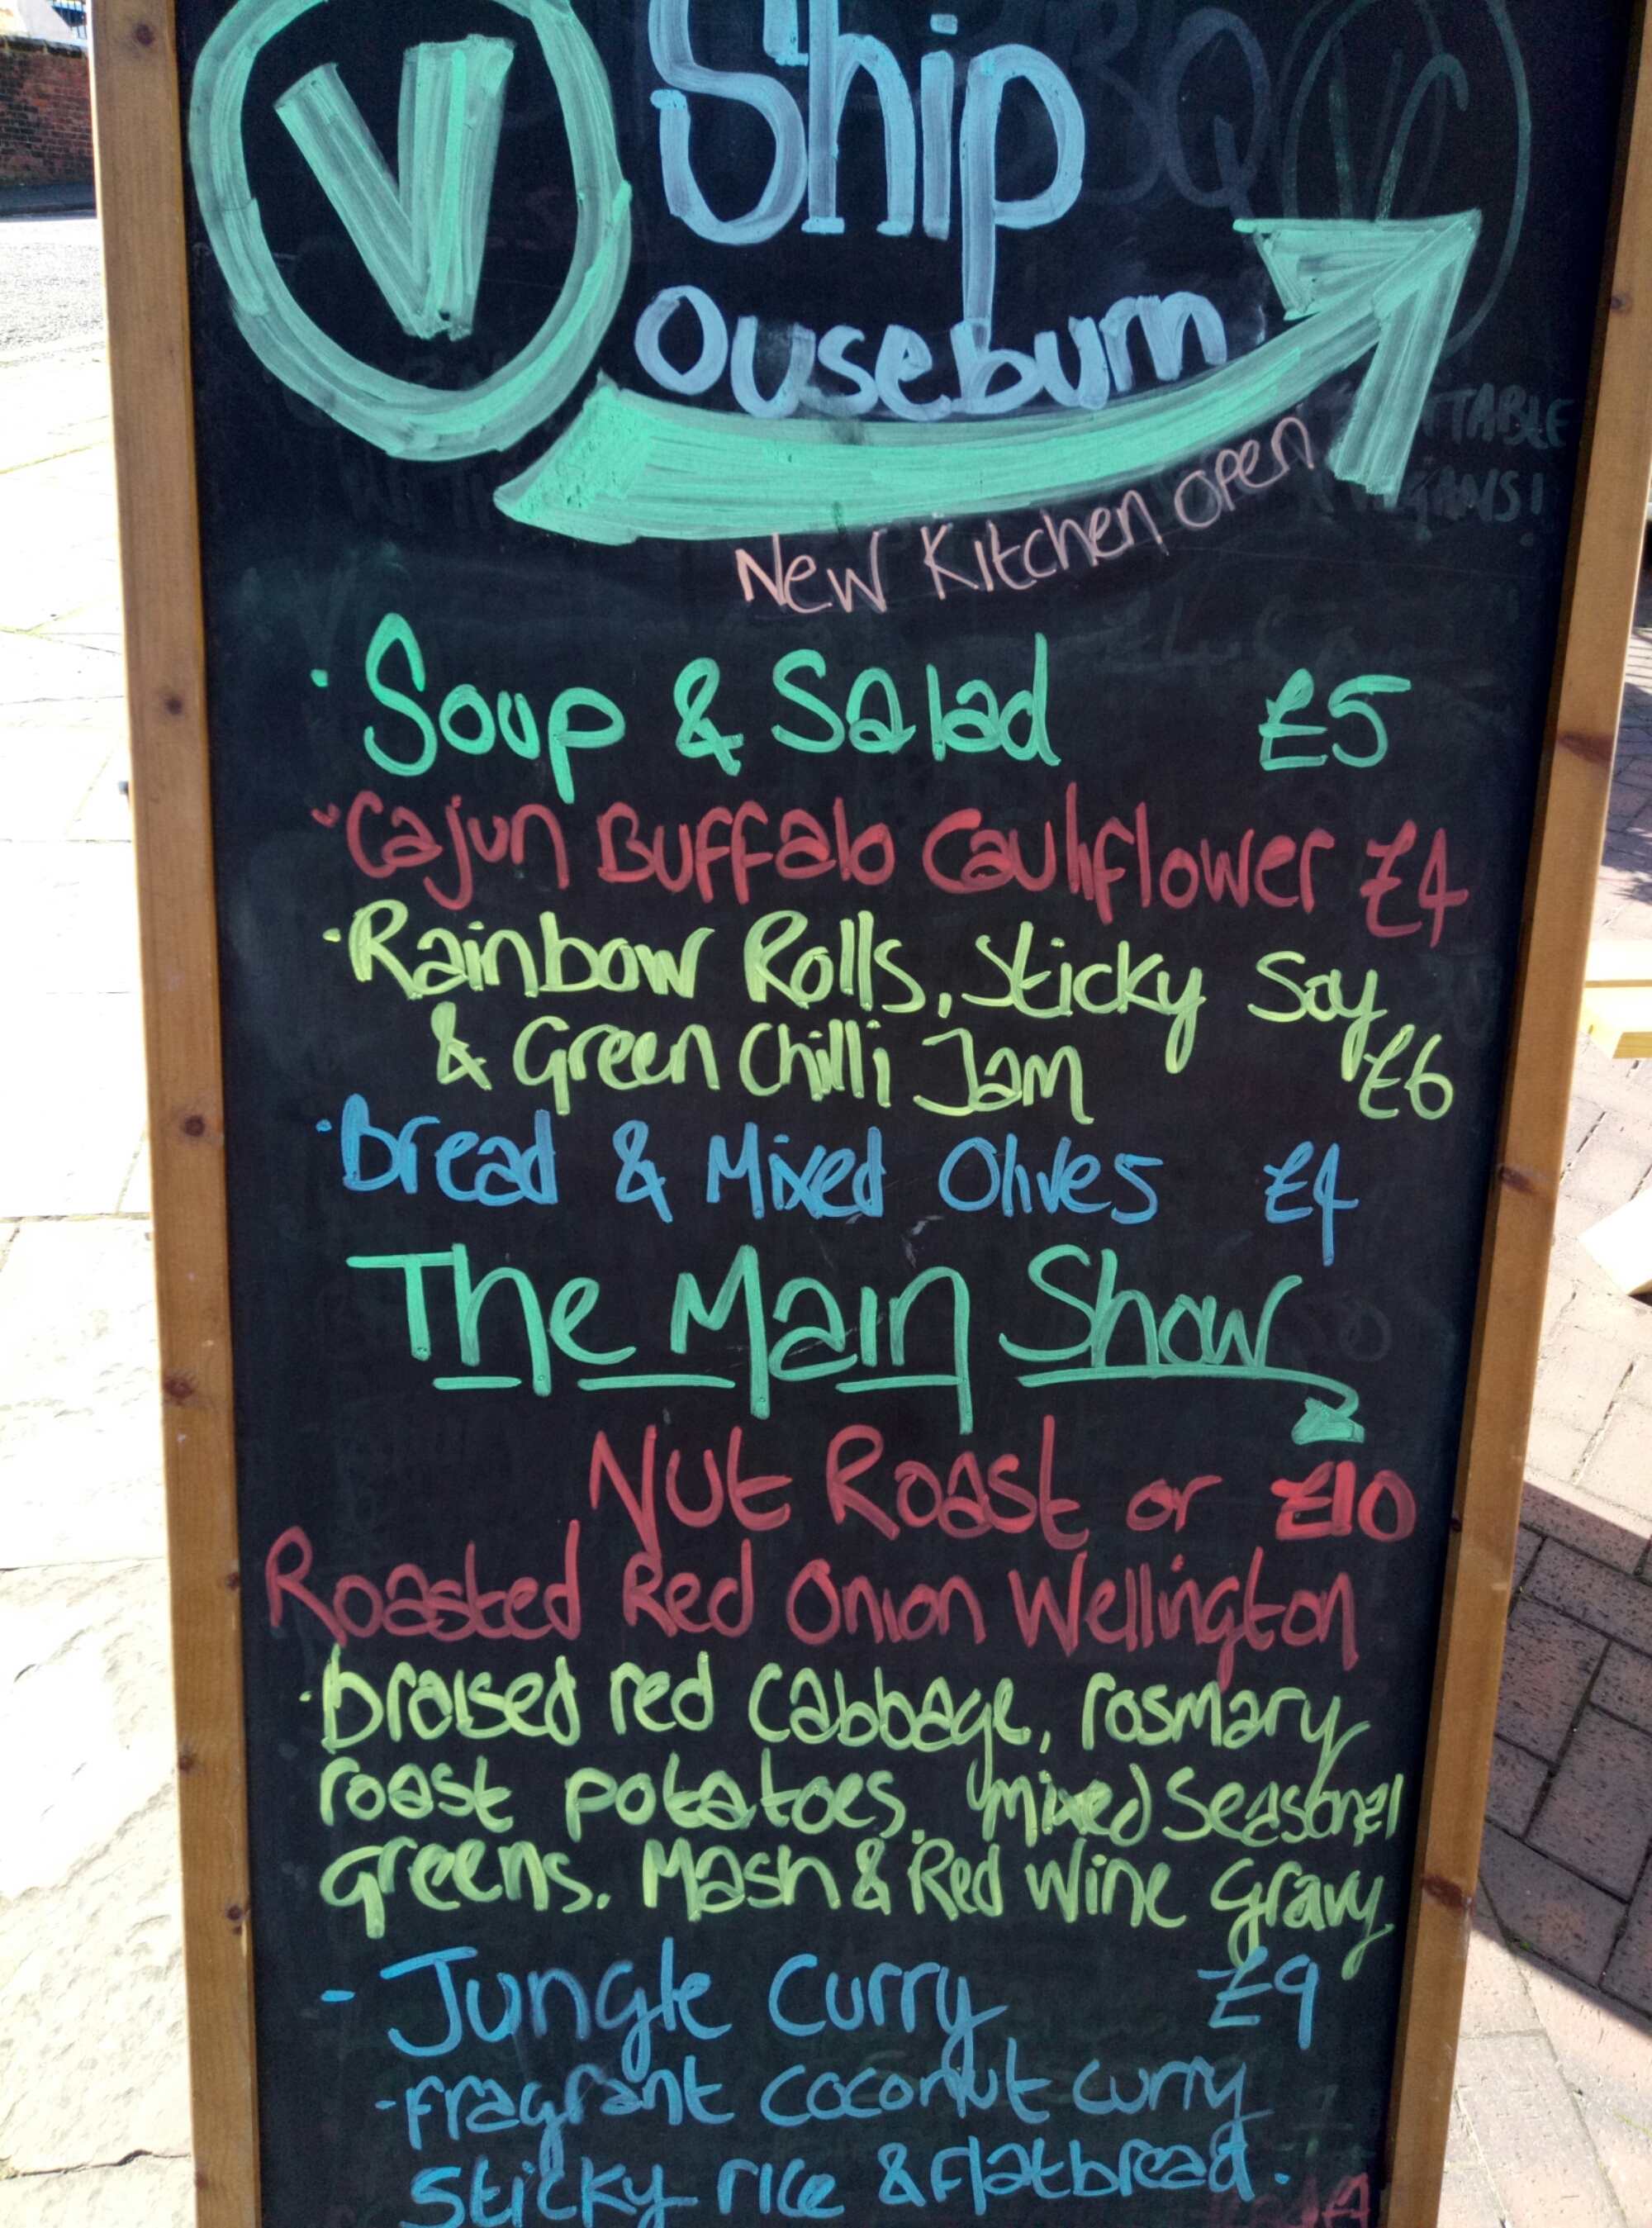 V
Ship
Ouseburn
New Kitchen open
TABLE
VEGANS!
· Soup & Salad £5
· Cajun Buffalo Cauliflower £4
· Rainbow Rolls, Sticky Soy
& Green Chilli Jam £6
· Bread & Mixed Olives £4
The Main Show
Nut Roast or £10
Roasted Red Onion Wellington
· braised red cabbage, rosmary
roast potatoes. mixed seasonel
greens. Mash & Red Wine gravy
- Jungle Curry £9
- fragrant coconut curry
Sticky rice & flatbread.